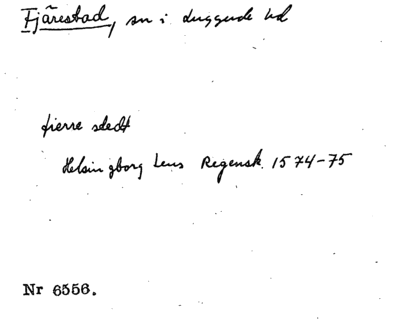 Fjärestad, sn i Luggude hd
fierre stedt
Helsingborg Lens Regensk. 1574-75
Nr 6556.